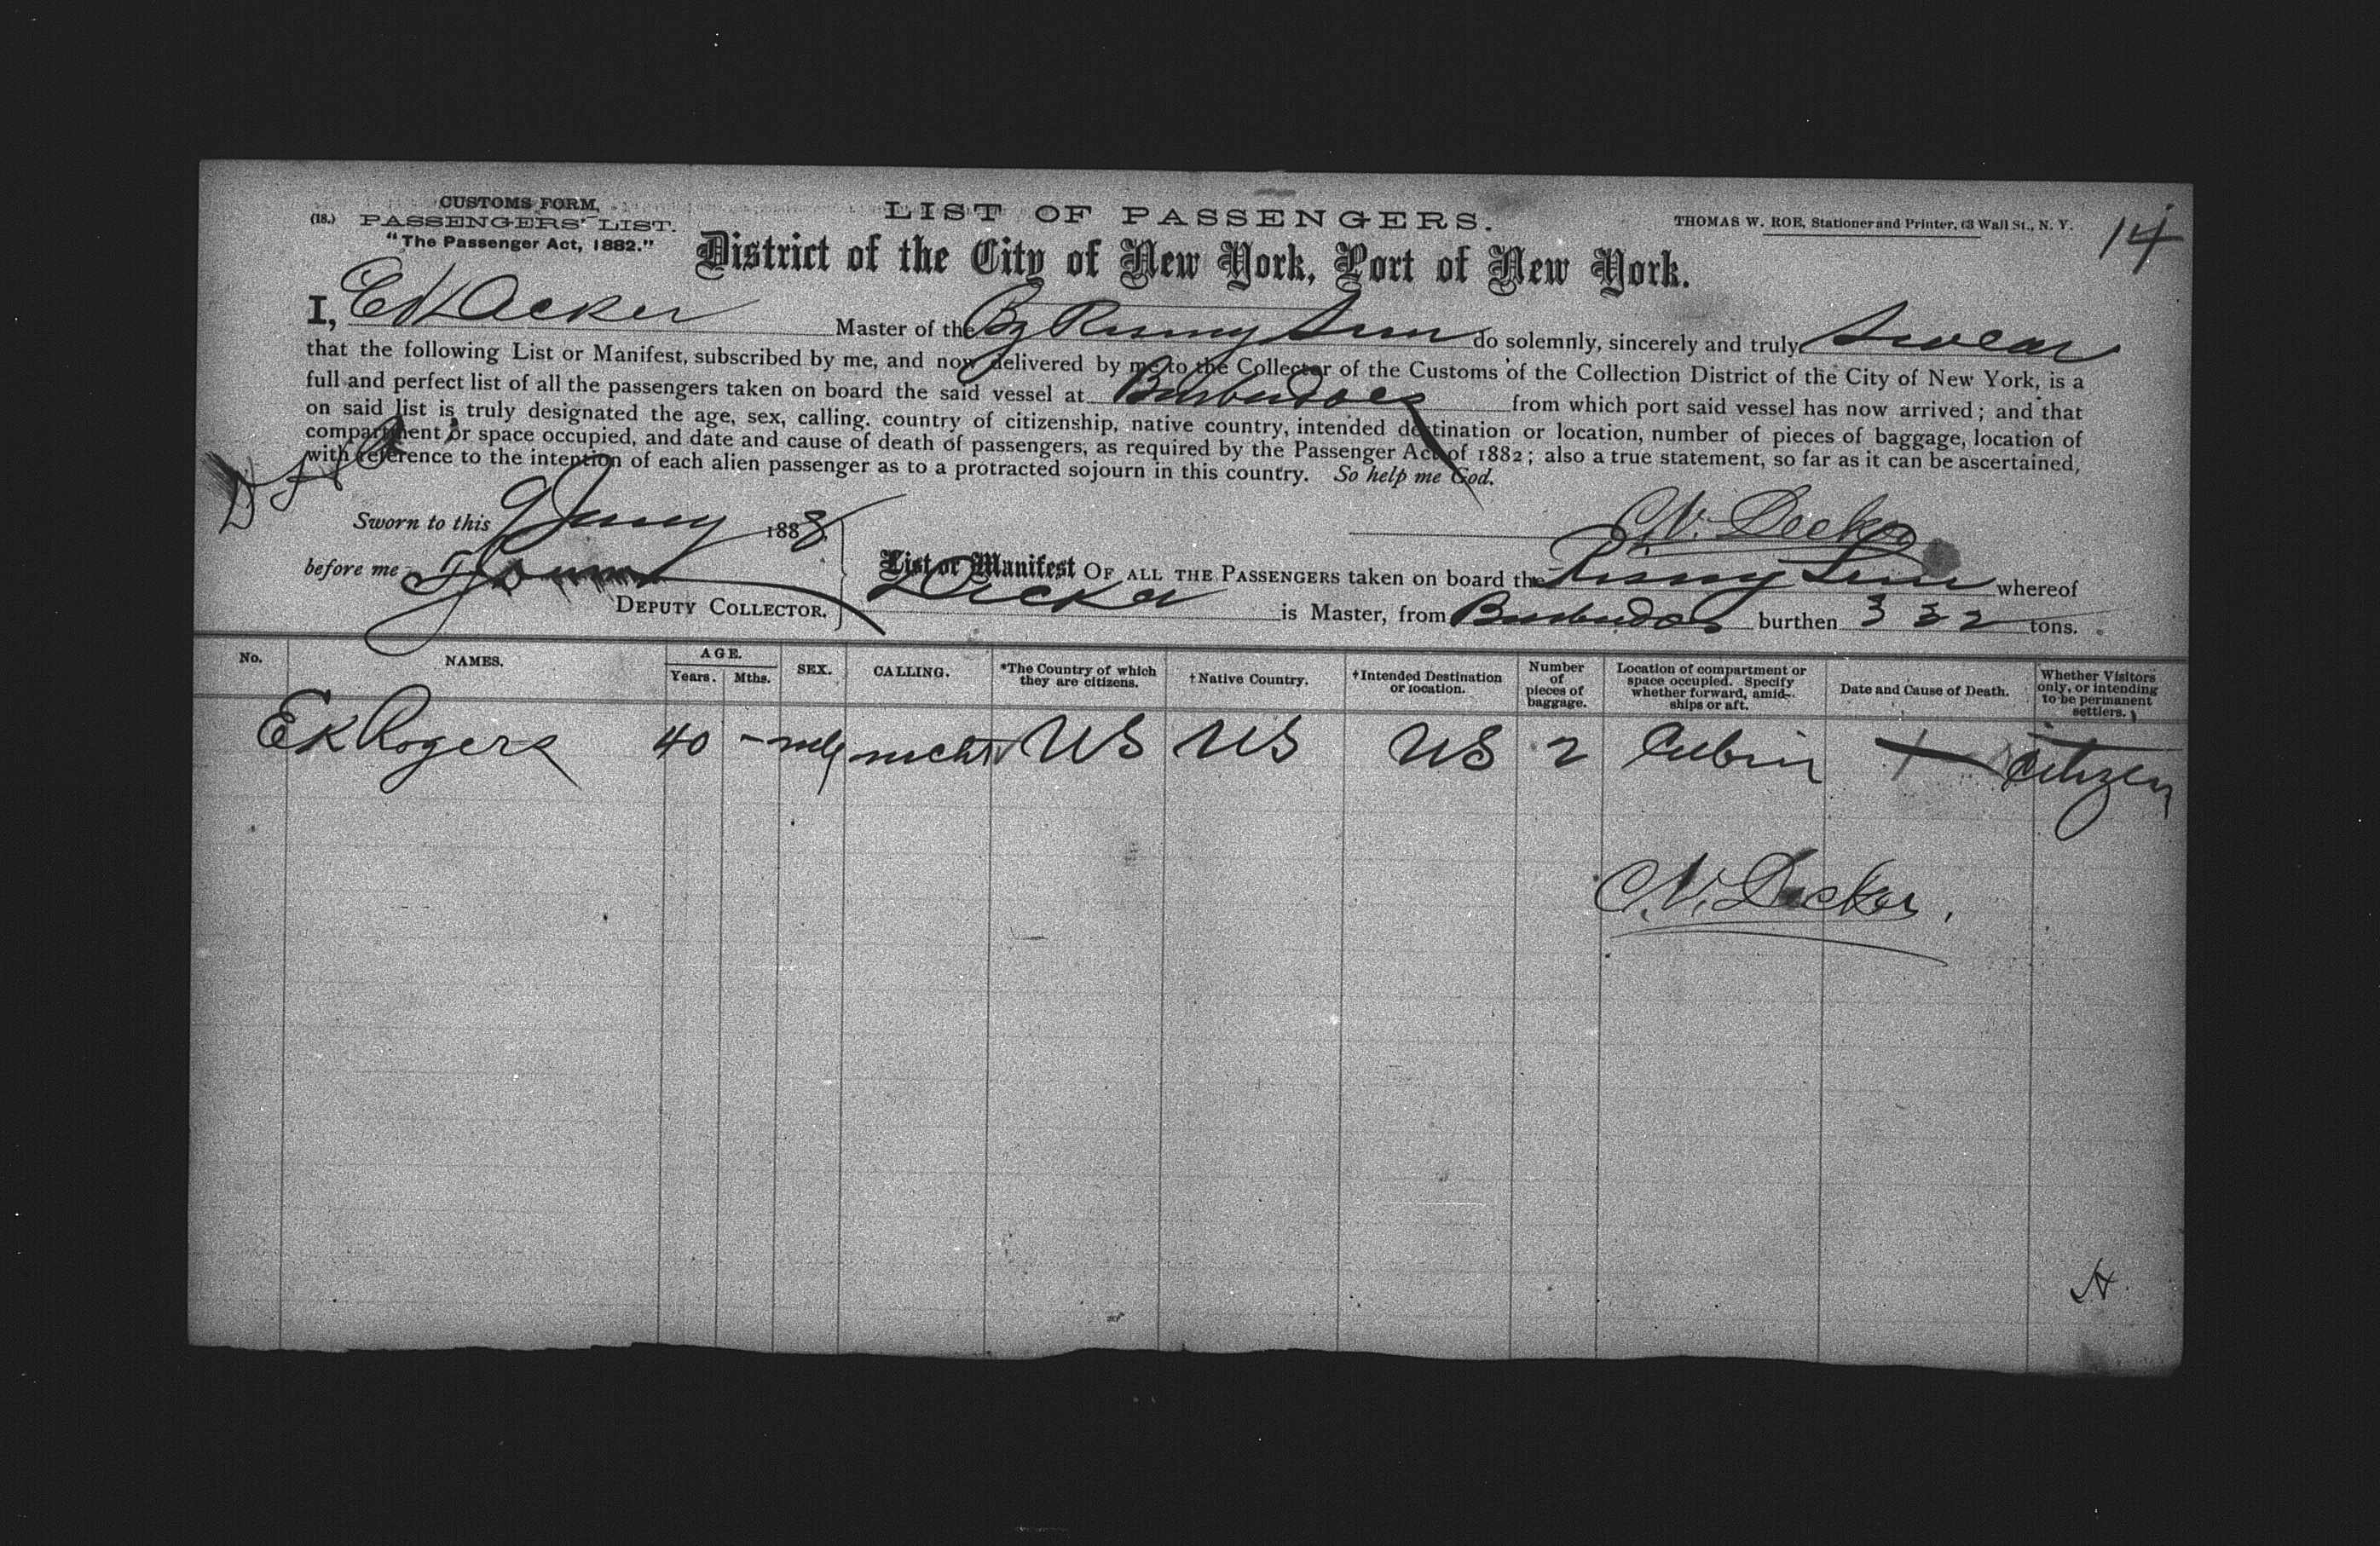 CUSTOMS FORM,
(18.) PASSENGERS' LIST.
"The Passenger Act, 1882."
LIST OF PASSENGERS.
THOMAS W. ROE, Stationer and Printer, 63 Wall St., N. Y.
14
District of the City of New York, Port of New York.
I, Acker Master of the Bg Rising Sun do solemnly, sincerely and truly Swear
that the following List or Manifest, subscribed by me, and now delivered by me to the Collector of the Customs of the Collection District of the City of New York, is a
full and perfect list of all the passengers taken on board the said vessel at Barbadoes from which port said vessel has now arrived; and that
on said list is truly designated the age, sex, calling, country of citizenship, native country, intended destination or location, number of pieces of baggage, location of
compartment or space occupied, and date and cause of death of passengers, as required by the Passenger Act of 1882; also a true statement, so far as it can be ascertained,
with reference to the intention of each alien passenger as to a protracted sojourn in this country. So help me God.
Sworn to this 9 Jany 1888,
C.N. Decker
before me
DEPUTY COLLECTOR.
List or Manifest OF ALL THE PASSENGERS taken on board the Rising Sun whereof
Decker is Master, from Barbados burthen 332 tons.
No. NAMES. AGE. Years. Mths. SEX. CALLING. *The Country of which they are citizens. †Native Country. †Intended Destination or location. Number of pieces of baggage. Location of compartment or space occupied. Specify whether forward, amidships or aft. Date and Cause of Death. Whether Visitors only, or intending to be permanent settlers.
E K Rogers 40 - mle mcht US US US 2 Cabin Citizen
C.N. Decker.
H